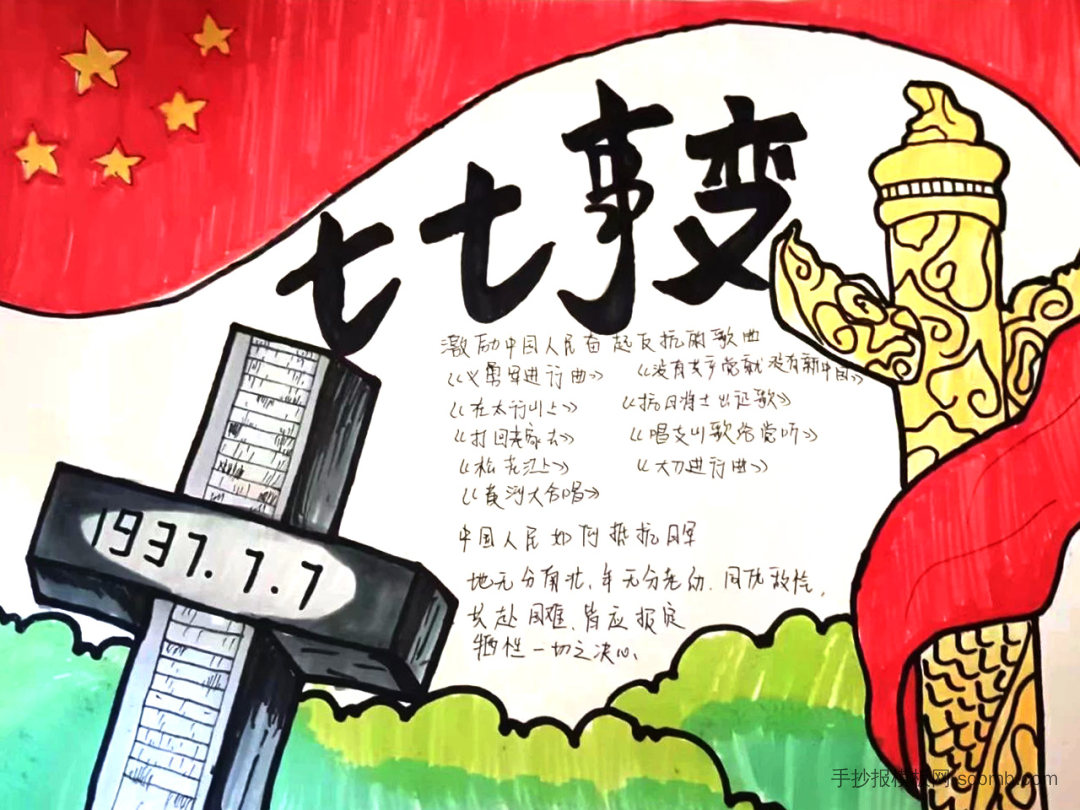 七七事变
激励中国人民奋起反抗的歌曲
《义勇军进行曲》 《没有共产党就没有新中国》
《在太行山上》 《抗日将士出征歌》
《打回老家去》 《唱支山歌给党听》
《松花江上》 《大刀进行曲》
《黄河大合唱》
1937.7.7
中国人民如何抵抗日军
地无分南北，年无分老幼．同仇敌忾，
共赴国难、皆应报定
牺牲一切之决心、
手抄报模板网-scbmb.com